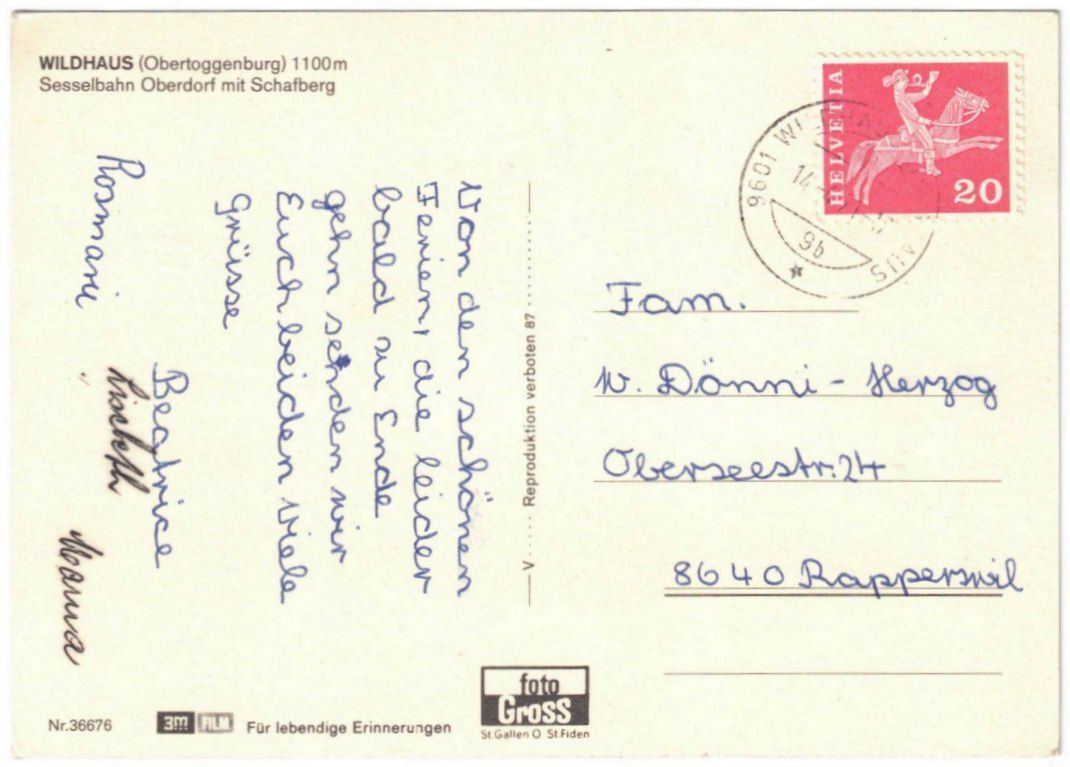 WILDHAUS (Obertoggenburg) 1100m
Sesselbahn Oberdorf mit Schafberg
Von den schönen
Ferien, die leider
bald zu Ende
gehn senden wir
Euch beiden viele
Grüsse
Beatrice
Lisbeth
Rosmari
Mama
V ..... Reproduktion verboten 87
HELVETIA
20
9601 WILDHAUS
14
9b
Fam.
W. Dönni-Herzog
Oberseestr. 24
8640 Rapperswil
Nr.36676
3M FILM Für lebendige Erinnerungen
foto
Gross
St.Gallen O St.Fiden